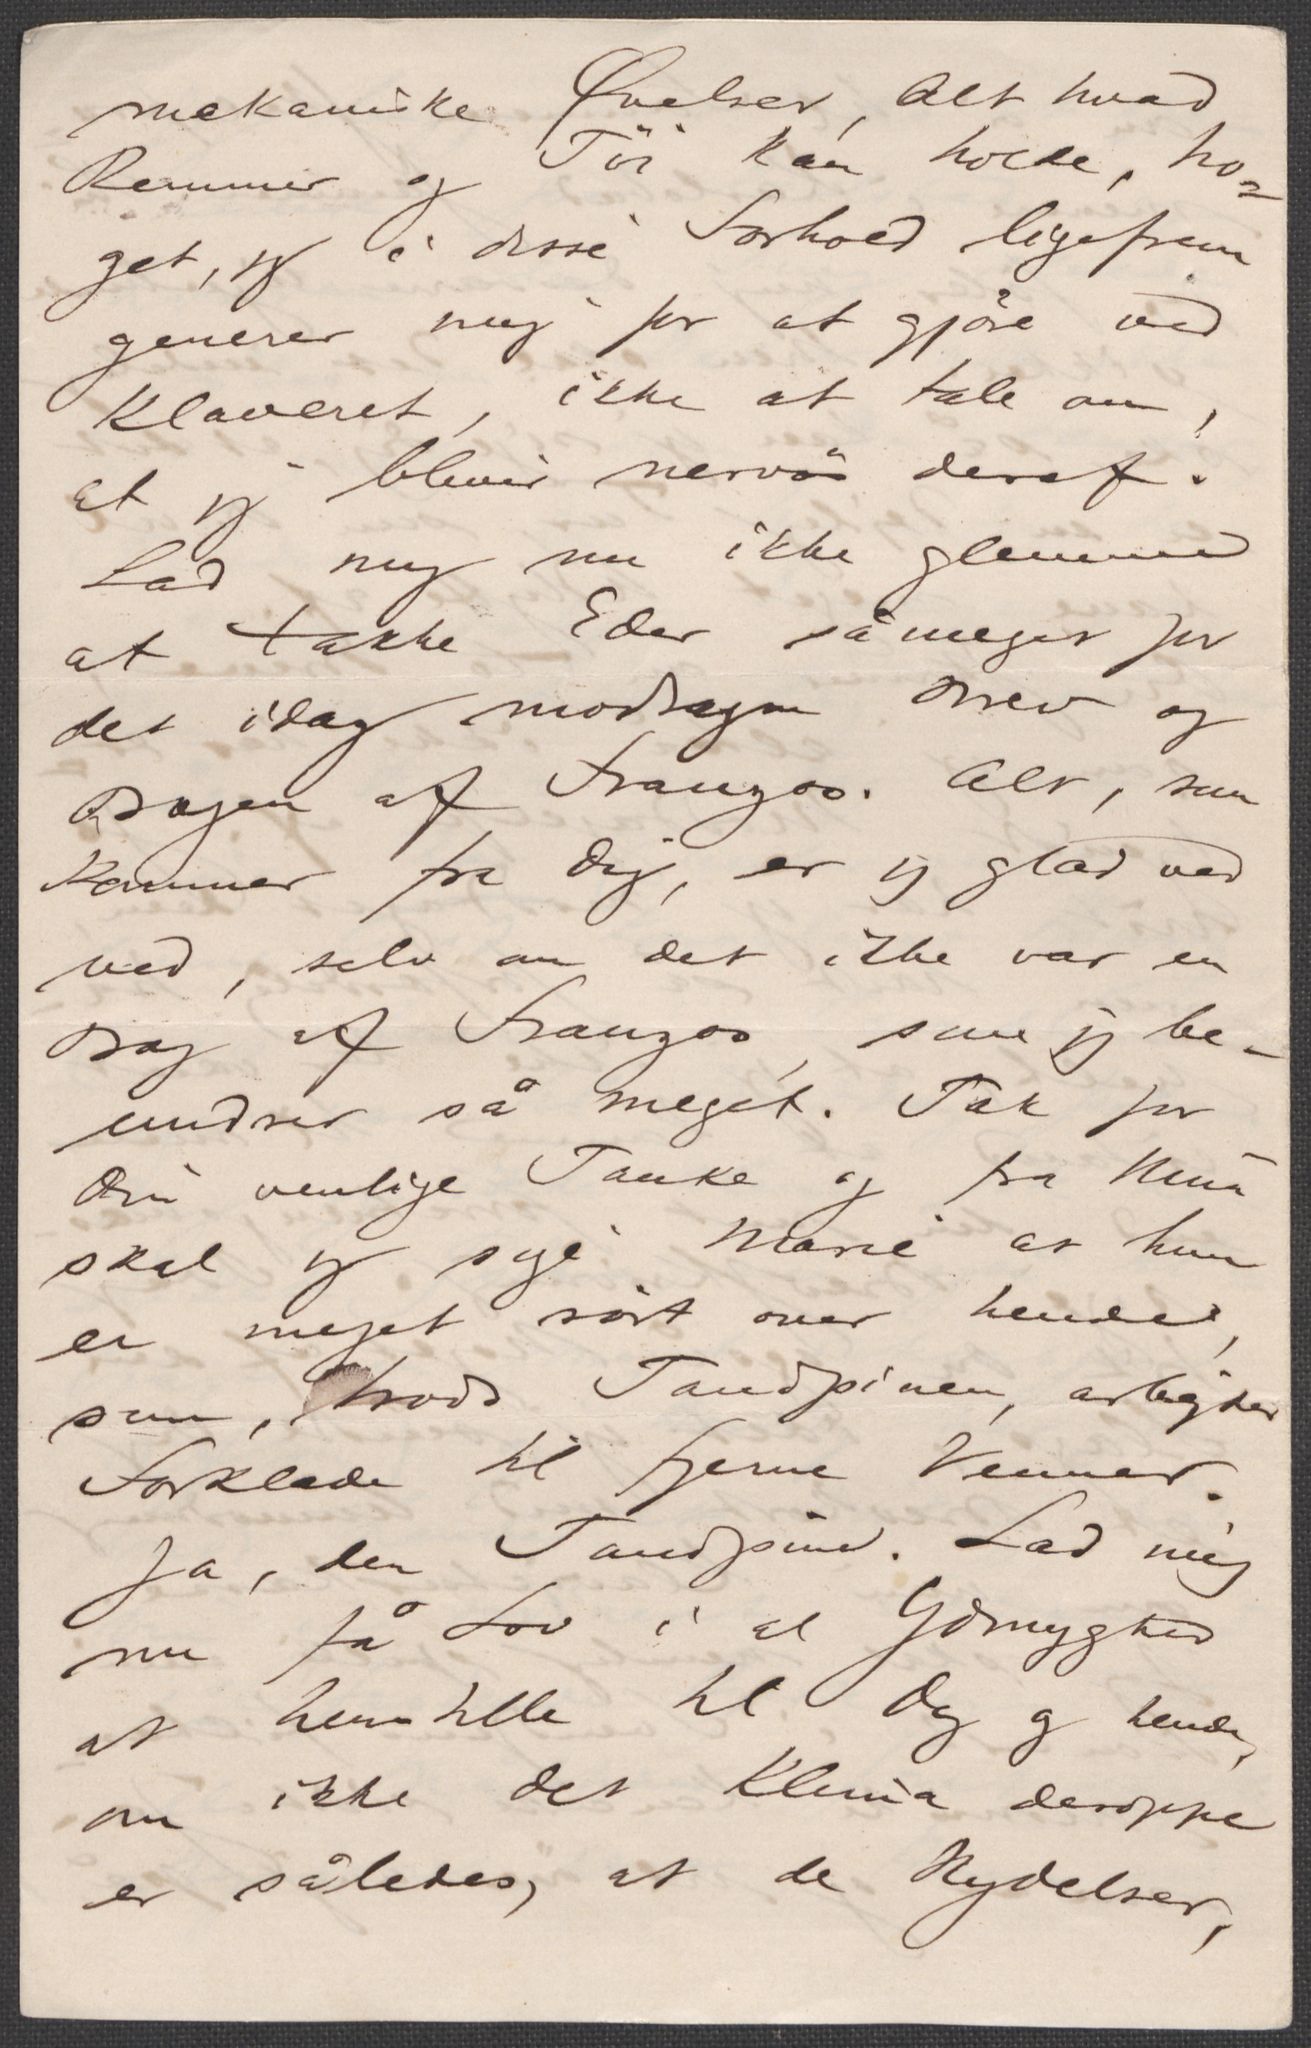 mekaniske Øvelser, Alt hvad
Remmer og Töi kan holde, no-
get, jeg i disse Forhold ligefrem
generer mig for at gjöre ved
Klaveret, ikke at tale om,
at jeg bliver nervös deraf.
Lad mig nu ikke glemme
at takke Eder såmeget for
det idag modtagne Brev og
Bogen af Franzos. Alt, som
kommer fra Dig, er jeg glad ved
ved, selv om det ikke var en
Bog af Franzos, som jeg be-
undrer så meget. Tak for
Din venlige Tanke og fra Nina
skal jeg sige Marie at hun
er meget rört over hende,
som, trods Tandpinen, arbejder
Forklæde til fjerne Venner.
Ja, den Tandpine. Lad mig
nu få Lov i al Ydmyghed
at henstille til Dig og hende,
om ikke det Klima deroppe
er således, at de Nydelser,